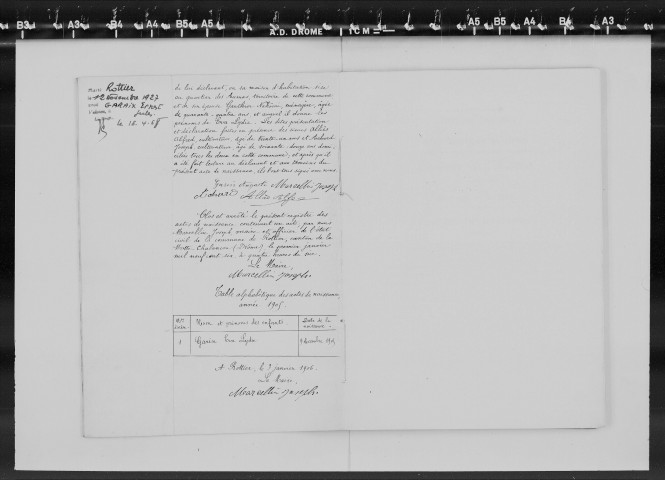 B3 A3 B4 A4 B5 A5 A.D. DROME 1CM A5 B5 A4 B4 A3
Rottier
12 Novembre 1927
GARAIX Ernest
Jules
Le 16.4.68
de lui déclarant, en sa maison d'habitation sise
au quartier des territoire de cette commune
et de son épouse Gauthier ménagère, âgée
de quarante-quatre ans et auquel il donne les
prénoms de Eva Lydie. Les dites présentation
et déclaration faites en présence des sieurs Alliés
Alfred, cultivateur, âgé de trente-un ans et
Joseph cultivateur, âgé de soixante-douze ans
tous les deux en cette commune, et après qu'il
a été fait lecture au déclarant et aux témoins du
présent acte de naissance, ils l'ont tous signé avec nous
Marcellin Joseph
Clos et arrêté le présent registre des
actes de naissance contenant un acte, par nous
Marcellin Joseph, maire et officier de l'état
civil de la commune de Rottier, canton de la
Motte-Chalancon (Drôme) le premier janvier
mil neuf cent six, à quatre heures du soir.
Le Maire,
Marcellin Joseph
Table alphabétique des actes de naissance,
année 1905
Nos Noms et prénoms des enfants Date de la naissance
1 Eva Lydie
A Rottier, le janvier 1906
Le Maire,
Marcellin Joseph